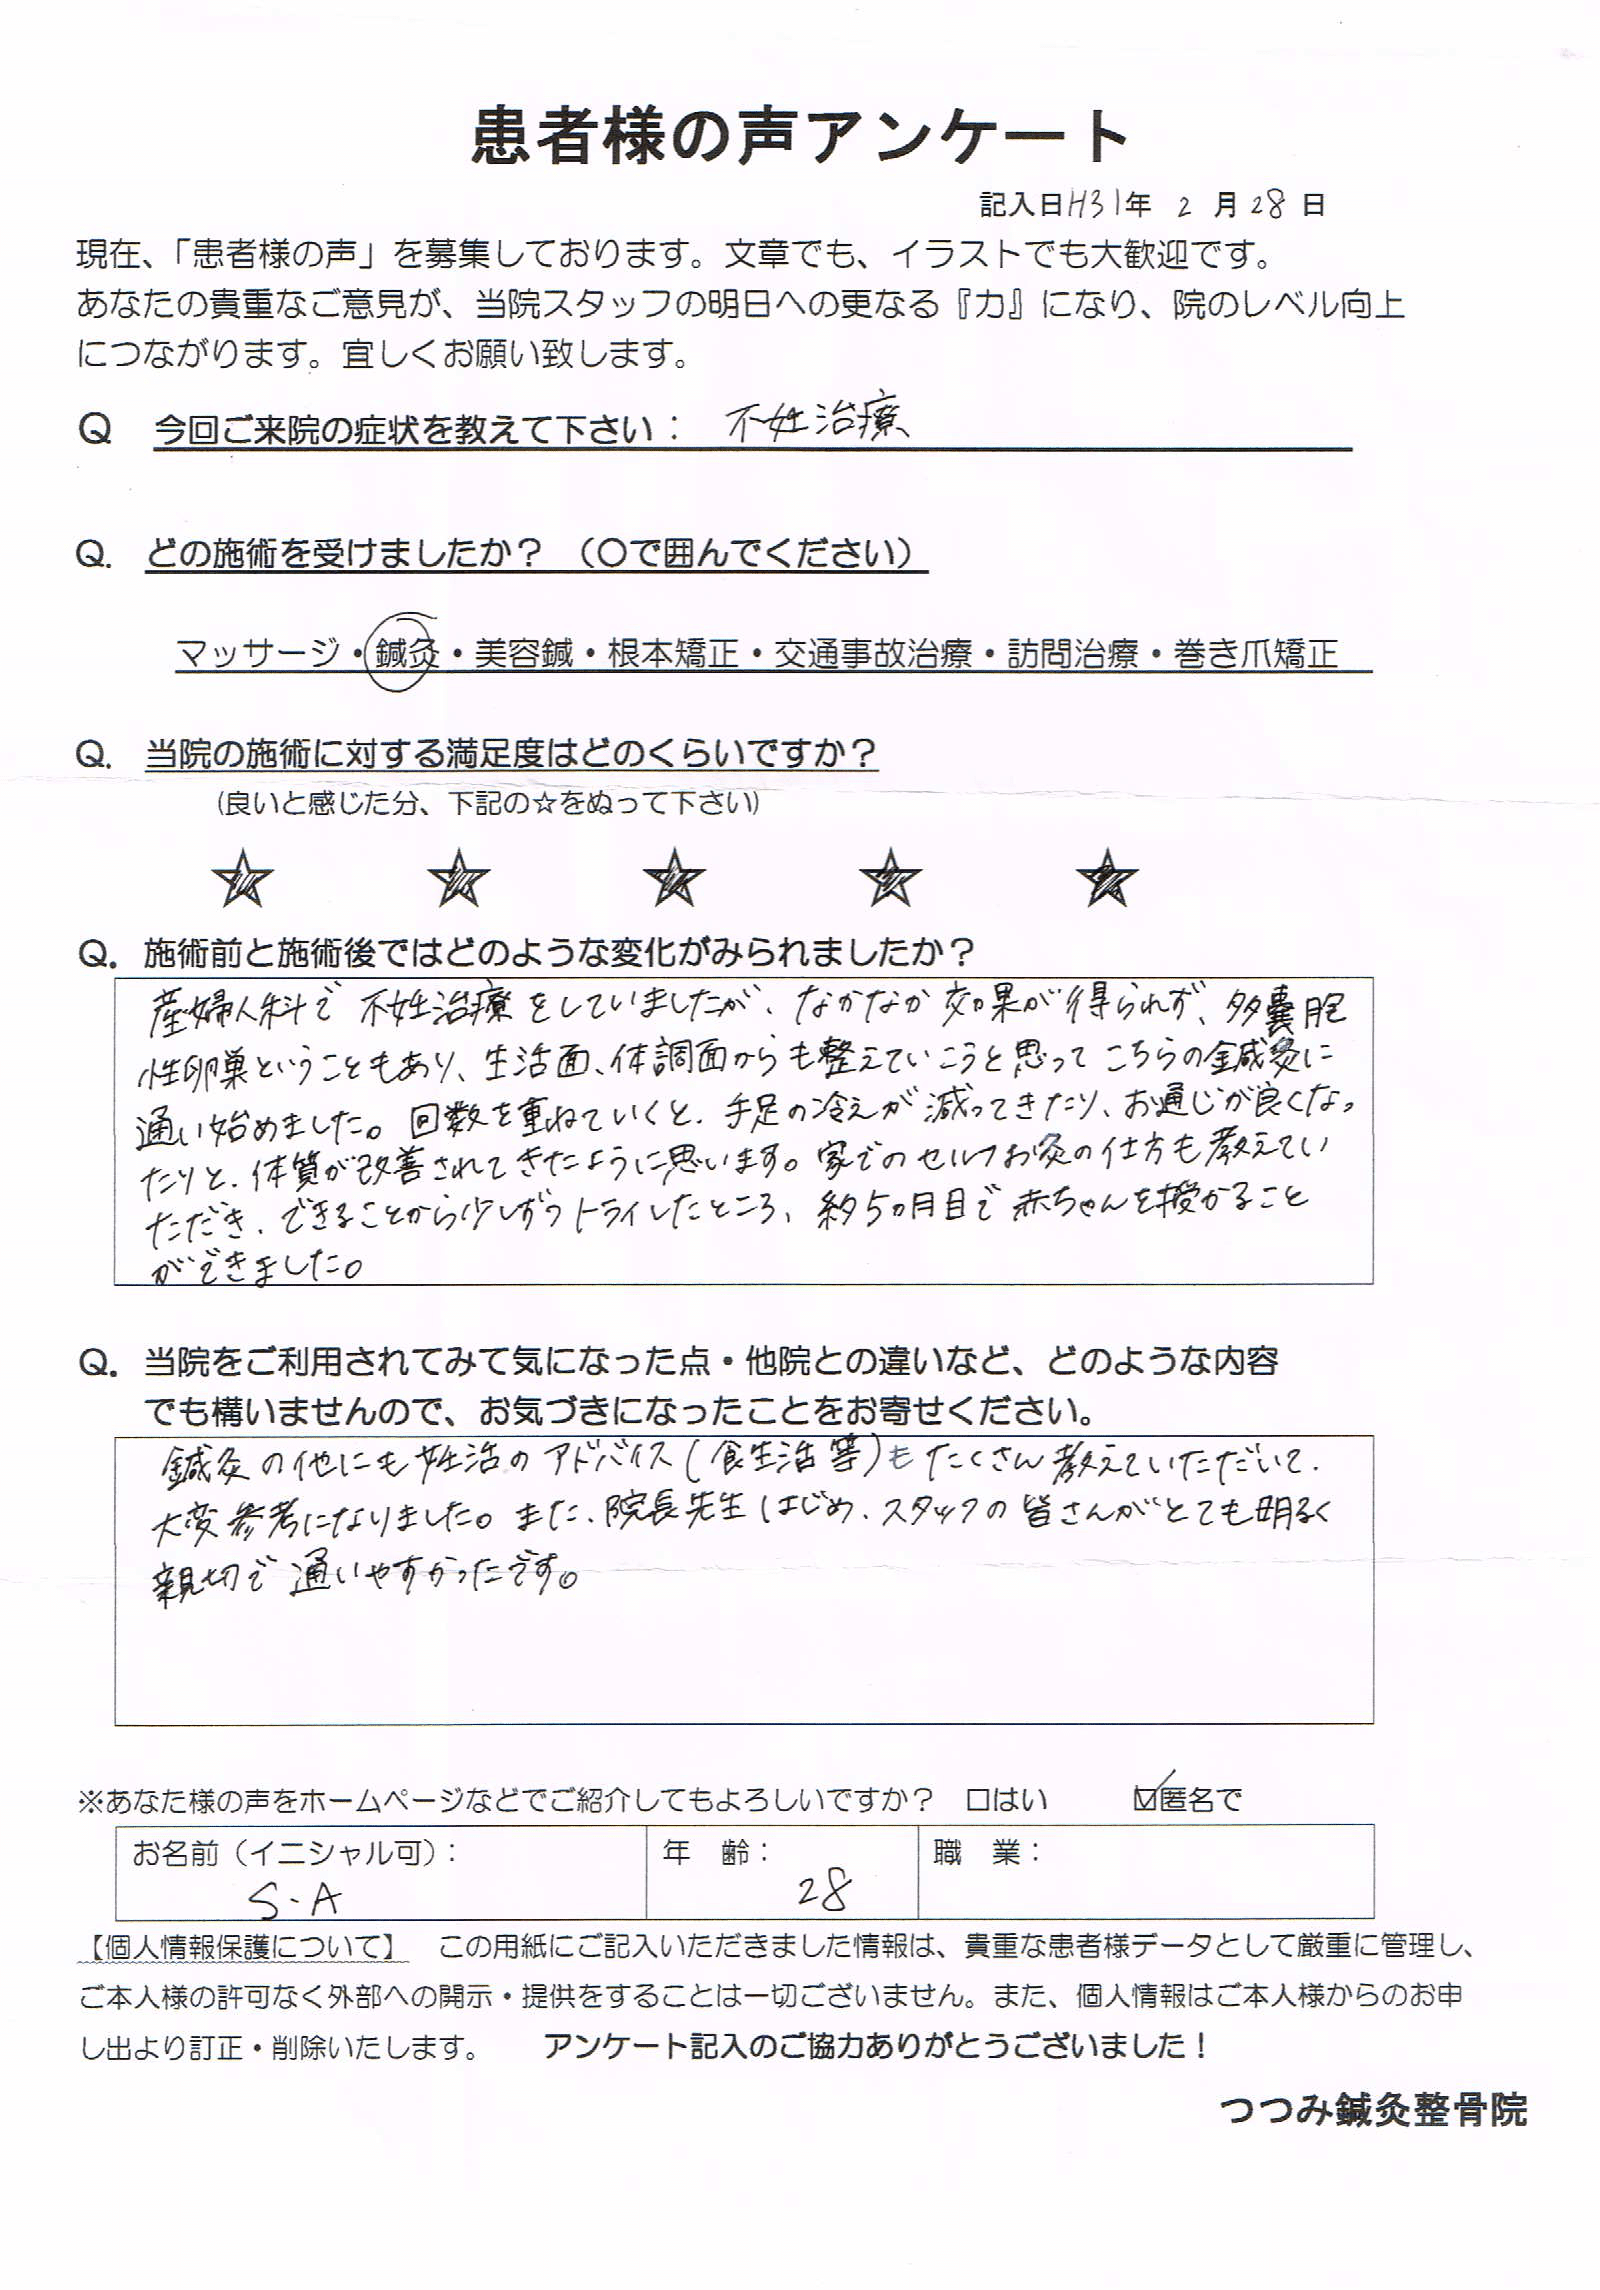 患者様の声アンケート
記入日H31年 2 月 28 日
現在、「患者様の声」を募集しております。文章でも、イラストでも大歓迎です。
あなたの貴重なご意見が、当院スタッフの明日への更なる『力』になり、院のレベル向上
につながります。宜しくお願い致します。
Q 今回ご来院の症状を教えて下さい： 不妊治療
Q. どの施術を受けましたか？ （〇で囲んでください）
マッサージ・鍼灸・美容鍼・根本矯正・交通事故治療・訪問治療・巻き爪矯正
Q. 当院の施術に対する満足度はどのくらいですか？
（良いと感じた分、下記の☆をぬって下さい）
☆ ☆ ☆ ☆ ☆
Q. 施術前と施術後ではどのような変化がみられましたか？
産婦人科で不妊治療をしていましたが、なかなか効果が得られず、多嚢胞
性卵巣ということもあり、生活面、体調面からも整えていこうと思ってこちらの鍼灸に
通い始めました。回数を重ねていくと、手足の冷えが減ってきたり、お通じが良くなっ
たりと、体質が改善されてきたように思います。家でのセルフお灸の仕方も教えてい
ただき、できることから少しずつトライしたところ、約5ヵ月目で赤ちゃんを授かること
ができました。
Q. 当院をご利用されてみて気になった点・他院との違いなど、どのような内容
でも構いませんので、お気づきになったことをお寄せください。
鍼灸の他にも妊活のアドバイス(食生活等)もたくさん教えていただいて、
大変参考になりました。また、院長先生はじめ、スタッフの皆さんがとても明るく
親切で通いやすかったです。
※あなた様の声をホームページなどでご紹介してもよろしいですか？ □はい ☑匿名で
お名前（イニシャル可）： 年 齢： 職 業：
S.A 28
【個人情報保護について】 この用紙にご記入いただきました情報は、貴重な患者様データとして厳重に管理し、
ご本人様の許可なく外部への開示・提供をすることは一切ございません。また、個人情報はご本人様からのお申
し出より訂正・削除いたします。 アンケート記入のご協力ありがとうございました！
つつみ鍼灸整骨院